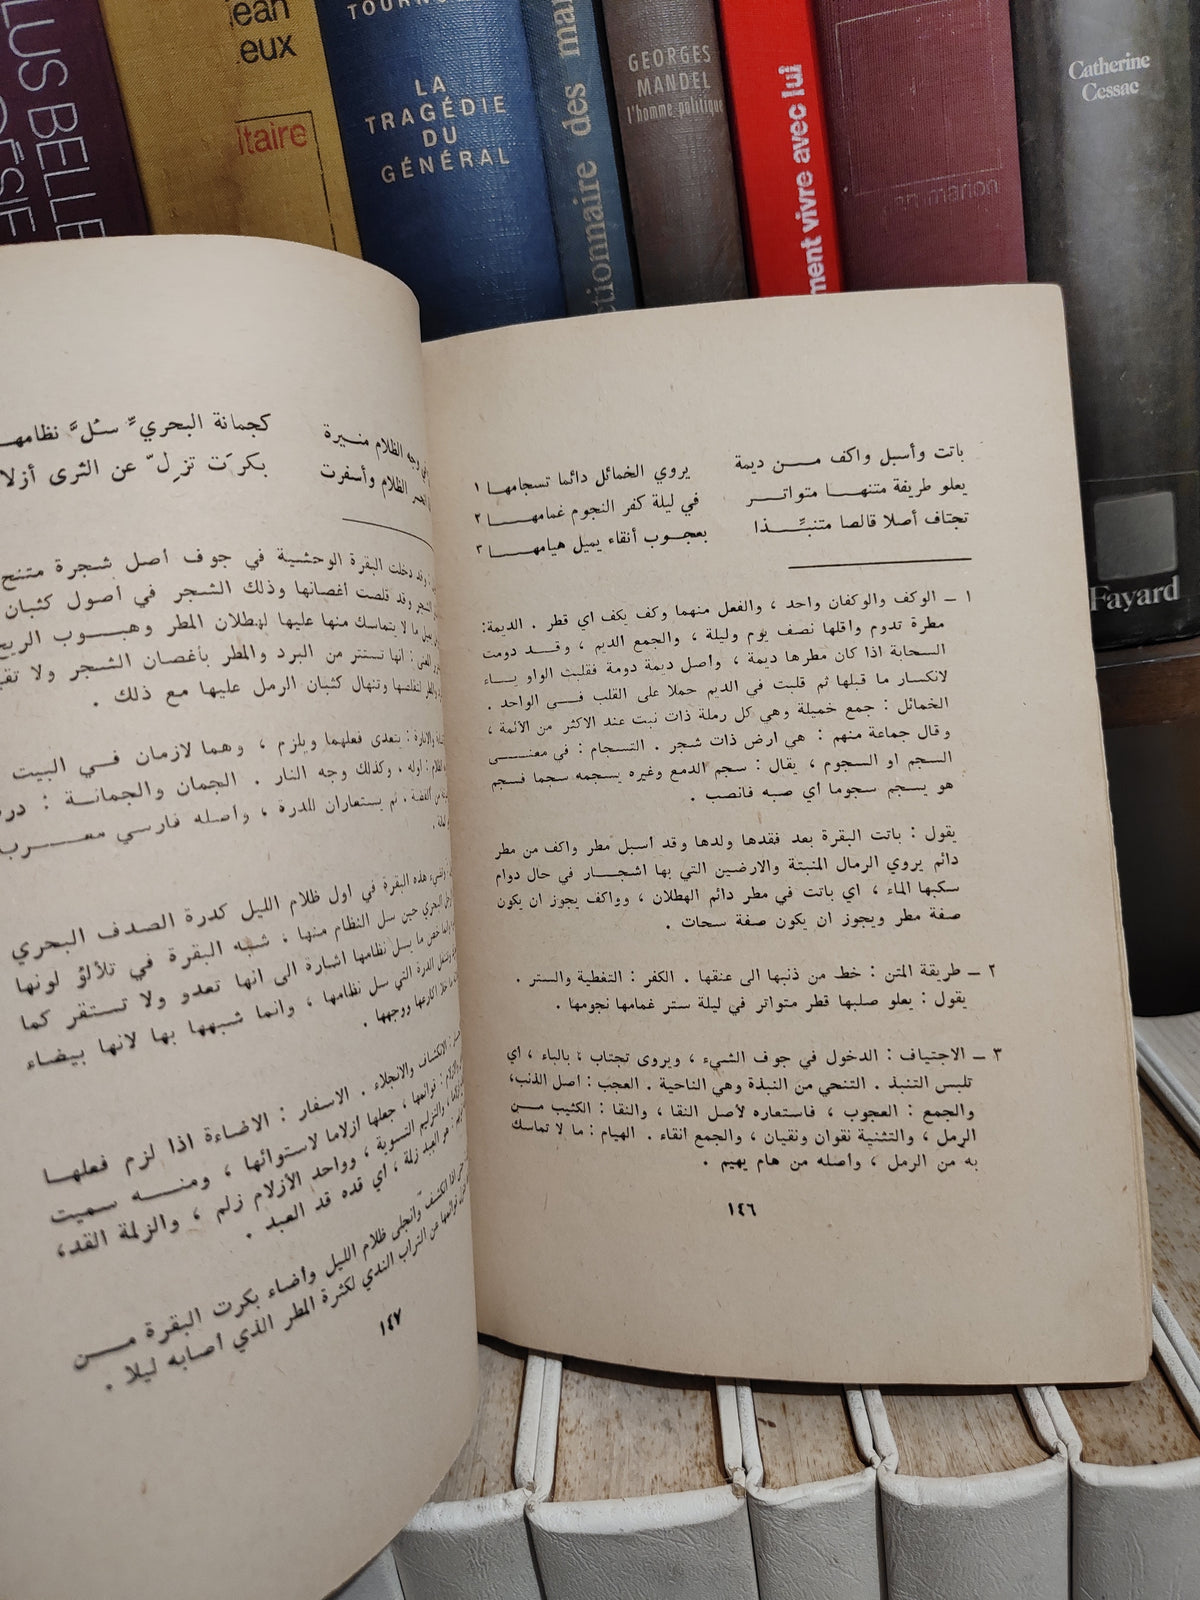 LUS BELLE
Jean
eux
litaire
TOURN
LA
TRAGÉDIE
DU
GÉNÉRAL
ctionnaire des mar
GEORGES
MANDEL
l'homme politique
ment vivre avec lui
marion
Catherine
Cessac
Fayard
باتت وأسبل واكف مـــن ديمة يروي الخمائل دائما تسجامهـا ١
يعلو طريقة متنهـــا متواتـــر في ليلة كفر النجوم غمامهـــا ٢
تجتاف أصلا قالصا متنبِّـــذا بعجـوب أنقاء يميل هيامهـــا ٣
١ ــ الوكف والوكفان واحد ، والفعل منهما وكف يكف اي قطر . الديمة:
مطرة تدوم واقلها نصف يوم وليلة ، والجمع الديم ، وقـد دومت
السحابة اذا كان مطرها ديمة ، واصل ديمة دومة فقلبت الواو يـــاء
لانكسار ما قبلها ثم قلبت في الديم حملا على القلب فـــي الواحد .
الخمائل : جمع خميلة وهي كل رملة ذات نبت عند الاكثر من الأئمة ،
وقال جماعة منهم : هي ارض ذات شجر . التسجام : في معنـــى
السجم او السجوم ، يقال : سجم الدمع وغيره يسجمه سجما فسجم
هو يسجم سجوما اي صبه فانصب .
يقول : باتت البقرة بعد فقدها ولدها وقد أسبل مطر واكف من مطر
دائم يروي الرمال المنبتة والارضين التي بها اشجـار في حال دوام
سكبها الماء ، اي باتت في مطر دائم الهطلان ، وواكف يجوز ان يكون
صفة مطر ويجوز ان يكون صفة سحاب .
٢ ــ طريقة المتن : خط من ذنبها الى عنقها . الكفر : التغطية والستر .
يقول : يعلو صلبها قطر متواتر في ليلة ستر غمامها نجومها .
٣ ــ الاجتياف : الدخول في جوف الشيء ، ويروى تجتاب ، بالباء ، اي
تلبس التنبذ . التنحي من النبذة وهي الناحية . العجب : اصل الذنب،
والجمع : العجوب ، فاستعاره لأصل النقا ، والنقا : الكثيب مـــن
الرمل ، والتثنية نقوان ونقيان ، والجمع انقاء . الهيام : ما لا تماسك
به من الرمل ، وأصله من هام يهيم .
١٤٦
وجه الظلام منـيرة كجمانة البحريِّ سُلَّ نظامهـ
الظلام وأسفرت بكرَت تزِلّ عن الثرى أزلا
دخلت البقرة الوحشية في جوف أصل شجرة متنح
الشجر وقد قلصت أغصانها وذلك الشجر في أصول كثبان
ما لا يتماسك منها عليها لهطلان المطر وهبـــوب الريح
انها تستتر من البرد والمطر بأغصان الشجر ولا تقي
لتقلصها وتنهال كثبان الرمل عليها مع ذلك .
والانارة : يتعدى فعلهما ويلزم ، وهما لازمان فـــي البيت
الظلام : اوله ، وكذلك وجه النار . الجمان والجمانـة : در
من الفضة ، ثم يستعاران للدرة ، وأصله فارسي معـــرب
هذه البقرة في اول ظلام الليل كدرة الصدف البحري
البحري حين سل النظام منها ، شبه البقرة في تلألؤ لونها
خص ما يسل نظامها اشارة الى انها تعدو ولا تستقر كما
الدرة التي سل نظامها ، وانما شبهها بها لانها بيضاء
ما خلا اكارعها ووجهها .
الانكشاف والانجلاء . الاسفار : الاضاءة اذا لزم فعلهـا
قوائمها ، جعلها ازلاما لاستوائها ، ومنـــه سميت
والتزليم التسوية ، وواحد الأزلام زلم ، والزلمة القد،
هو العبد زلمة ، اي قده قد العبد .
اذا انكشف وانجلى ظلام الليل وأضاء بكرت البقرة مـــن
قوائمها عن التراب الندي لكثرة المطر الذي أصابه ليلا .
١٤٧